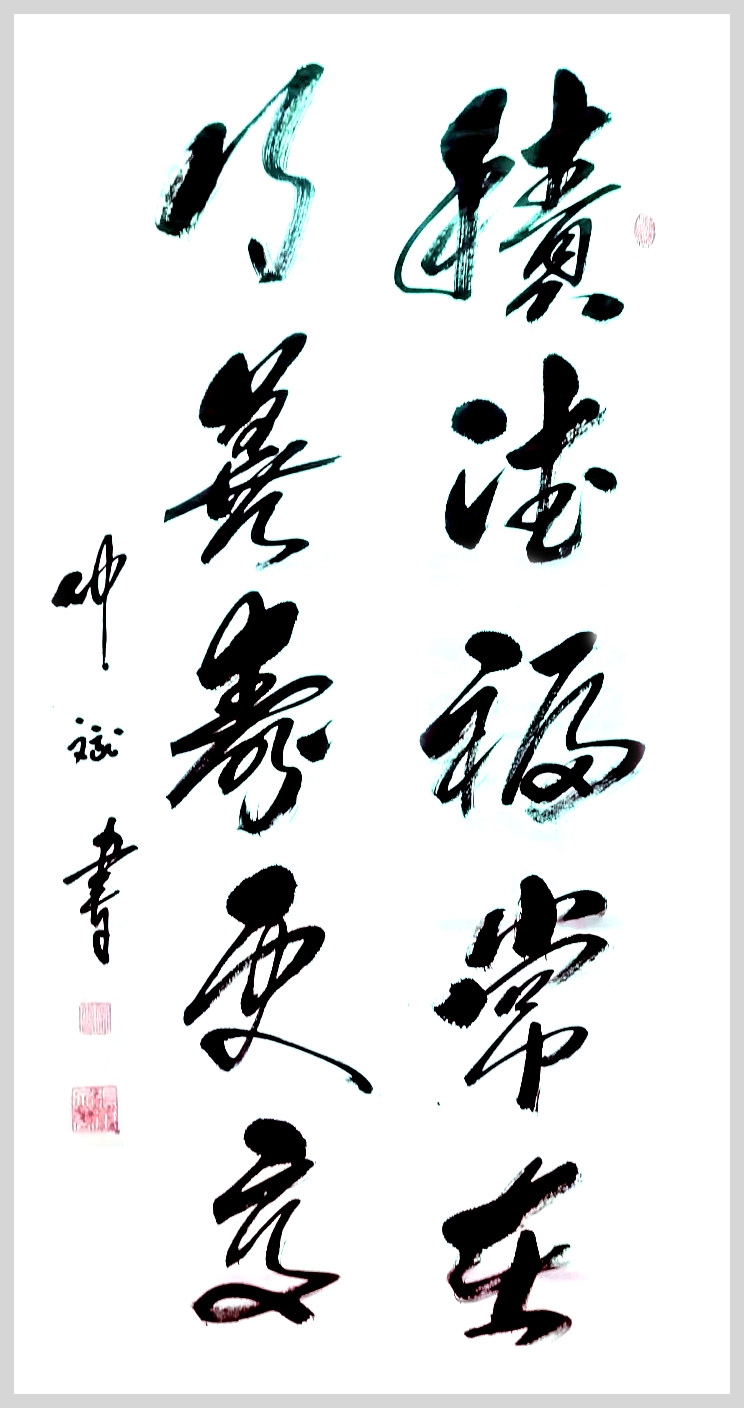 積德福常在
行善壽更長
仲斌書